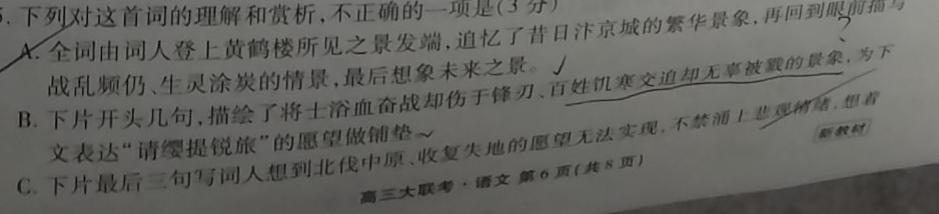 5.下列对这首词的理解和赏析,不正确的一项是(3分)
A.全词由词人登上黄鹤楼所见之景发端,追忆了昔日汴京城的繁华景象,再回到眼前描写
战乱频仍、生灵涂炭的情景,最后想象未来之景。
B.下片开头几句,描绘了将士浴血奋战却伤于锋刃、百姓饥寒交迫却无辜被戮的景象,为下
文表达“请缨提锐旅”的愿望做铺垫。
C.下片最后三句写词人想到北伐中原、收复失地的愿望无法实现,不禁涌上悲观情绪,想着
新教材
高三大联考·语文 第6页(共8页)